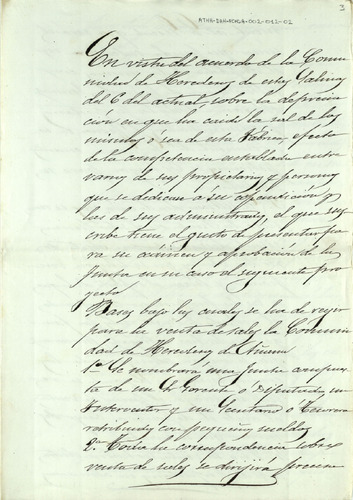 ATHA-DAH-FCHCA-002-012-02
3
En vista del acuerdo de la Comu
nidad de Herederos de estas Salinas
del 6 del actual, sobre la deprecia
ción en que ha caido la sal de las
mismas ó sea de esta fabrica, efecto
de la competencia entablada entre
varios de sus propietarios y personas
que se dedican á su espendición y
las de sus administrados, el que sus
cribe tiene el gusto de presentar pa
ra su exámen y aprobación de la
Junta en su caso el siguiente pro
yecto
Bases bajo las cuales se ha de regir
para la venta de sales la Comuni
dad de Herederos de Añana
1ª Se nombrará una Junta compues
ta de un Sr Gerente o Diputado, un
Interventor y un Secretario o Tesorero
retribuidos con pequeños sueldos
2ª Toda la correspondencia sobre
venta de sales se dirijira precisa